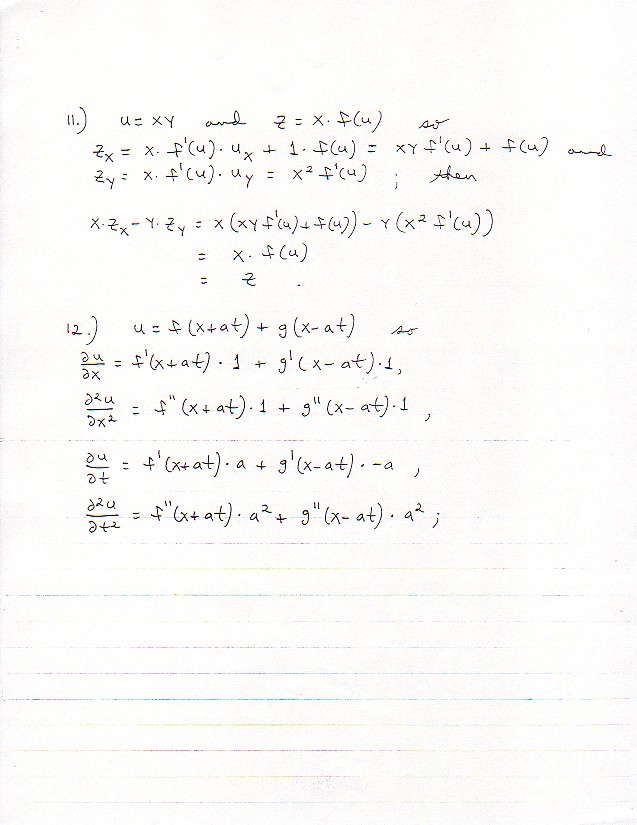 11.) u = xy and z = x · f(u) so
z_x = x · f'(u) · u_x + 1 · f(u) = xy f'(u) + f(u) and
z_y = x · f'(u) · u_y = x² f'(u) ; then
x·z_x − y·z_y = x (xy f'(u) + f(u)) − y (x² f'(u))
= x · f(u)
= z .
12.) u = f(x+at) + g(x−at) so
∂u/∂x = f'(x+at) · 1 + g'(x−at)·1,
∂²u/∂x² = f''(x+at)·1 + g''(x−at)·1 ,
∂u/∂t = f'(x+at)·a + g'(x−at)·−a ,
∂²u/∂t² = f''(x+at)·a² + g''(x−at)·a² ;